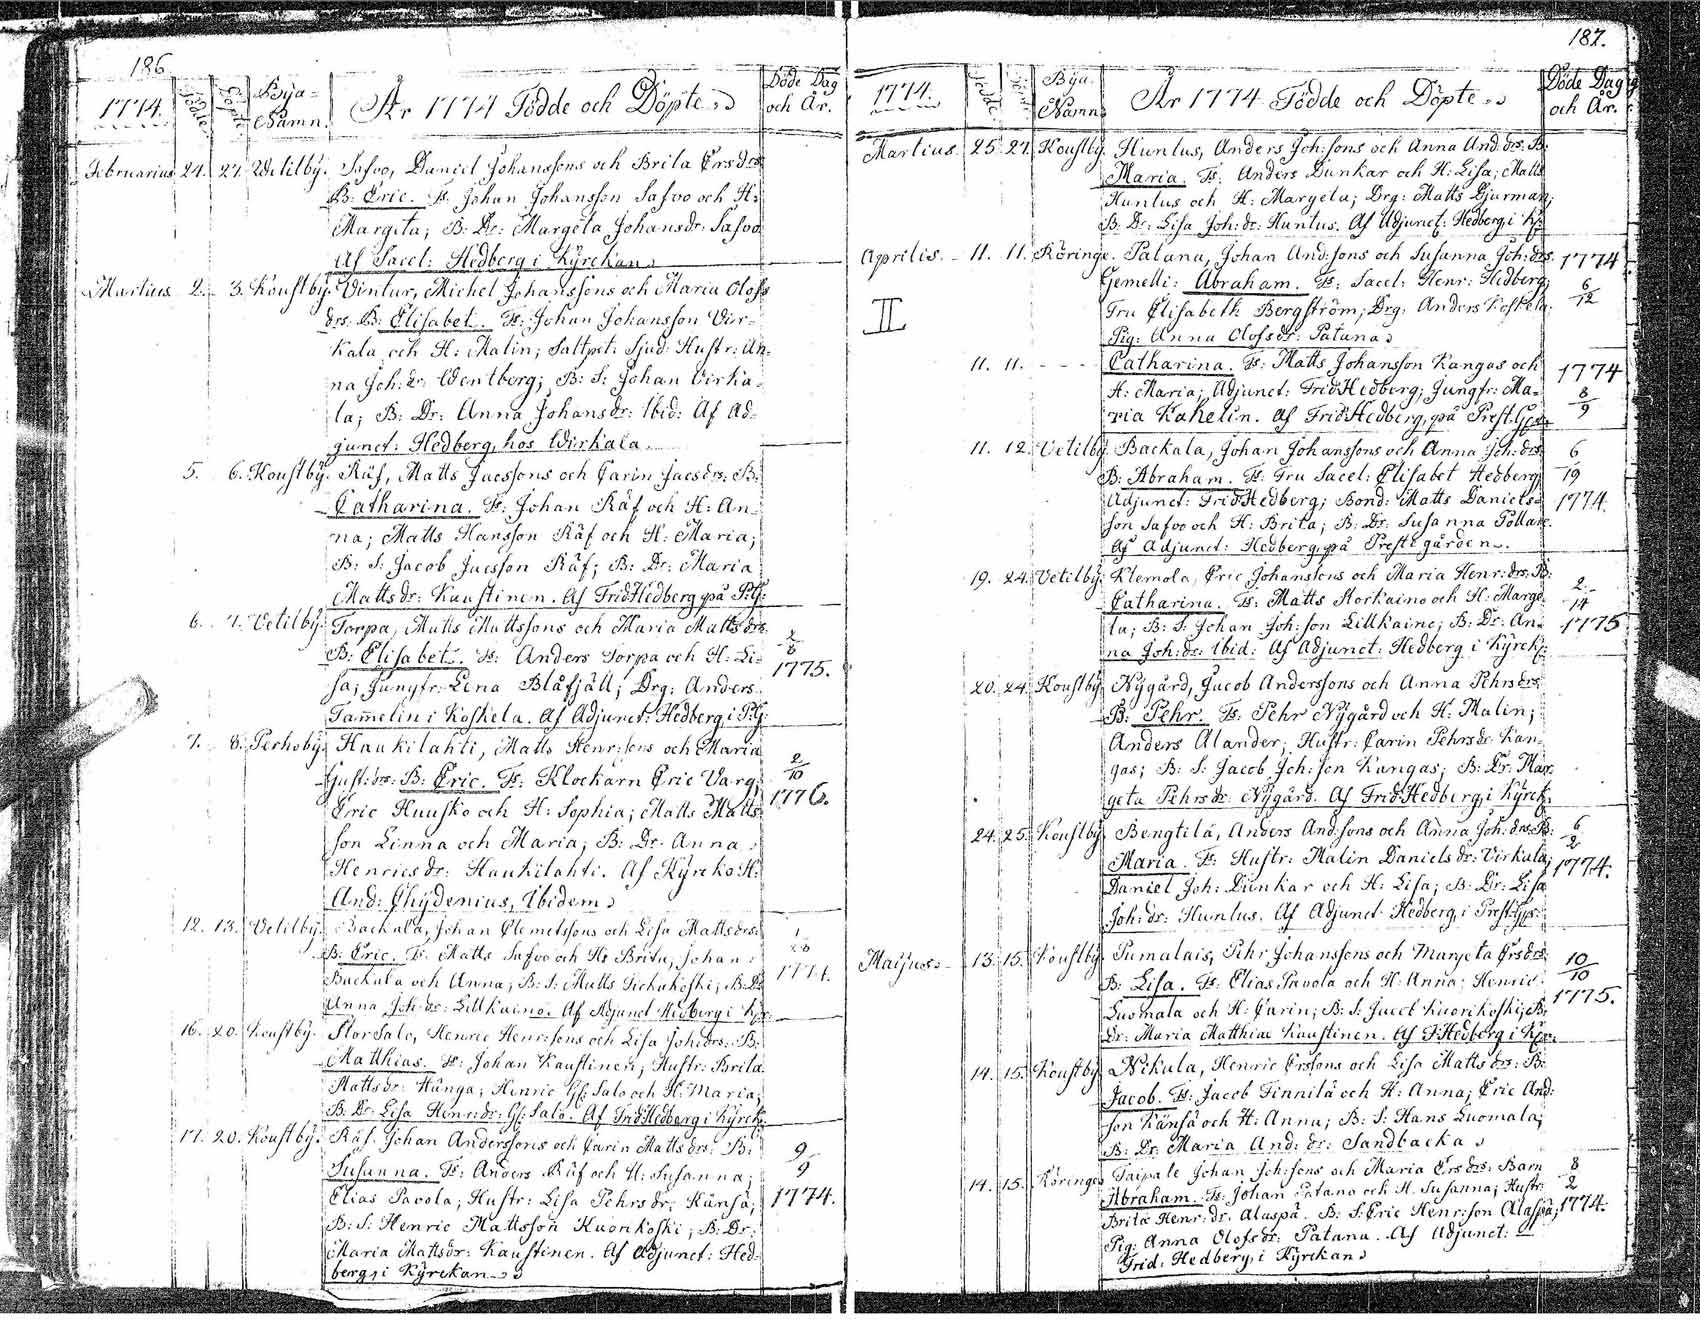 186
1774.
Födde
Döpte
Bya-
Namn.
År 1774 Födde och Döpte.
Döde Dag
och År.
Februarius 24. 27. Wetilby. Safvo, Daniel Johanssons och Brita Ersdrs
B: Eric. Fs: Johan Johansson Safvo och H:
Margeta; B: Dr: Margeta Johansdr: Safvo
Af Sacel: Hedberg i Kÿrckan
Martius 2. 3. Koustbÿ. Vintur, Michel Johanssons och Maria Olofs
drs. B: Elisabet. Fs: Johan Johansson Vir-
kala och H: Malin; Saltpet: Sjud: Hustr: An-
na Joh: dr Wentberg; B: S: Johan Virka-
la; B: Dr: Anna Johansdr: Ibid: Af Ad-
junct: Hedberg, hos Wirkala.
5. 6. Koustbÿ. Räf, Matts Jacssons och Carin Jacsdrs: B:
Catharina. Fs: Johan Räf och H: An-
na; Matts Hansson Räf och H: Maria;
B: S: Jacob Jacsson Räf; B: Dr: Maria
Mattsdr: Kaustinen. Af Frid Hedberg på P:G:
6. 7. Vetilbÿ. Torpa, Matts Mattssons och Maria Mattsdrs
B: Elisabet. Fs: Anders Torpa och H: Li-
sa; Jungfr: Lena Blåfjäll; Drg: Anders
Tam̅elin i Koskela. Af Adjunct: Hedberg i P:G:
2/8
1775.
7. 8. Perhobÿ. Haukilahti, Matts Henr:sons och Maria
Gust:drs: B: Eric. Fs: Klockarn Eric Varg;
Eric Huusko och H: Sophia; Matts Matts-
son Linna och Maria; B: Dr: Anna
Henricsdr: Haukilahti. Af Kÿrcko H:
And: Chÿdenius, Ibidem
2/10
1776.
12. 13. Vetilbÿ. Backala, Johan Clemetssons och Lisa Mattsdrs:
B: Eric. Fs: Matts Safvo och H: Brita; Johan
Backala och Anna; B: S: Matts; B: Dr
Anna Joh: dr: Lillkaino. Af Adjunct Hedberg i Kÿr:
1/28
1774.
16. 20. Koustbÿ. Stor Salo, Henric Henr:sons och Lisa Joh:drs: B:
Matthias. Fs: Johan Kaustinen; Hustr: Brita
Mattsdr: Hånga; Henric Salo och H: Maria;
B: Dr: Lisa Henr:dr: Salo. Af Frid Hedberg i Kÿrck:
17. 20. Koustbÿ. Räf. Johan Anderssons och Carin Mattsdrs: B:
Susanna. Fs: Anders Räf och H: Susanna;
Elias Pavola; Hustr: Lisa Pehrsdr: Känsä;
B: S: Henric Mattsson Kuorikoski; B: Dr:
Maria Mattsdr: Kaustinen. Af Adjunct: Hed-
berg, i Kÿrckan
9/9
1774.
187.
1774.
Födde
Döpte
Bya-
Namn.
År 1774 Födde och Döpte
Döde Dag
och År.
Martius 25 27. Koustbÿ. Huntus, Anders Joh:sons och Anna And:drs: B:
Maria. Fs: Anders Dunkar och H: Lisa; Matts
Huntus och H: Margeta; Drg: Matts Djurman;
B: Dr: Lisa Joh:dr: Huntus. Af Adjunct: Hedberg, i K:
Aprilis. 11. 11. Röringe. Patana, Johan And:sons och Susanna Joh:drs
Gemelli: Abraham. Fs: Sacel: Henr: Hedberg;
Fru Elisabeth Bergström; Drg: Anders Koskela;
Pig: Anna Olofsdr: Patana
1774
6/12
II
11. 11. Catharina. Fs: Matts Johansson Kangas och
H: Maria; Adjunct: Frid Hedberg; Jungfr: Ma-
ria Kahelin. Af Frid Hedberg, på Prest.G
1774
8/9
11. 12. Vetilbÿ Backala, Johan Johanssons och Anna Joh:drs:
B: Abraham. Fs: Fru Sacel: Elisabet Hedberg
Adjunct: Frid Hedberg; Bond: Matts Daniels-
son Safvo och H: Brita; B: Dr: Susanna Pollare.
Af Adjunct: Hedberg, på Prestegården.
6/19
1774.
19. 24. Vetilbÿ. Klemola, Eric Johanssons och Maria Henr:drs: B:
Catharina. Fs: Matts Storkaino och H: Marge-
ta; B: S: Johan Joh:son Lillkaino; B: Dr: An-
na Joh:dr: Ibid: Af Adjunct: Hedberg i Kÿrck:
2/14
1775
20. 24. Koustbÿ. Nÿgård, Jacob Anderssons och Anna Pehrsdrs
B: Pehr. Fs: Pehr Nÿgård och H: Malin;
Anders Alander; Hustr: Carin Pehrsdr: Kan-
gas; B: S: Jacob Joh:son Kangas; B: Dr: Mar-
geta Pehrsdr: Nÿgård. Af Frid Hedberg, i Kÿrck:
24. 25. Koustbÿ Bengtilä, Anders And:sons och Anna Joh:drs: B:
Maria. Fs: Hustr: Malin Danielsdr: Virkala;
Daniel Joh: Dunkar och H: Lisa; B: Dr: Lisa
Joh: dr: Huntus. Af Adjunct Hedberg, i Prest:
6/2
1774.
Maijus. 13. 15. Koustbÿ Pumalais, Pehr Johanssons och Margeta Ersdrs
B: Lisa. Fs: Elias Pavola och H: Anna; Henric
Luomala och H: Carin; B: S: Jacob Kuorikoski; B:
Dr: Maria Matthiae Kaustinen. Af F: Hedberg i
10/10
1775.
14. 15. Koustbÿ Nikula, Henric Erssons och Lisa Mattsdrs: B:
Jacob. Fs: Jacob Finnilä och H: Anna; Eric And:
son Känsä och H: Anna; B: S: Hans Luomala;
B: Dr: Maria And: dr: Sandbacka
14. 15. Röringe. Taipale Johan Joh:sons och Maria Ersdrs: Barn
Abraham. Fs: Johan Patana och H: Susanna; Hustr:
Brita Henr: dr. Alaspä. B: S: Eric Henr:son Alaspä;
Pig: Anna Olofsdr: Patana. Af Adjunct:
Frid. Hedberg, i Kÿrckan
8/2
1774.